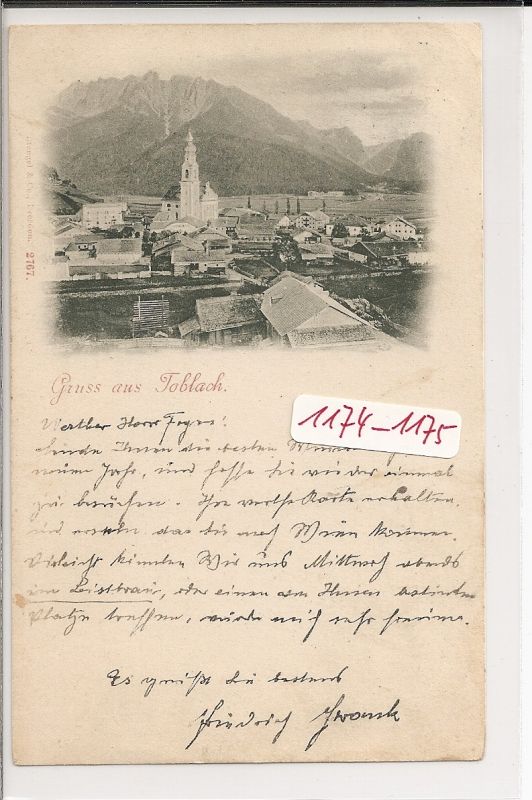 Stengel & Co., Dresden. 2767.
Gruss aus Toblach.
1174-1175
Werther Herr
Sende Ihnen die besten
neuen Jahr, und hoffe Sie wieder einmal
zu besuchen. Ihre werthe Karte erhalten,
und das Sie nach Wien kommen.
Vieleicht könnten Wir uns Mittwoch abends
im, oder einen von Ihnen
Platze treffen, würde mich sehr freuen.
Es grüßt Sie bestens
Friedrich